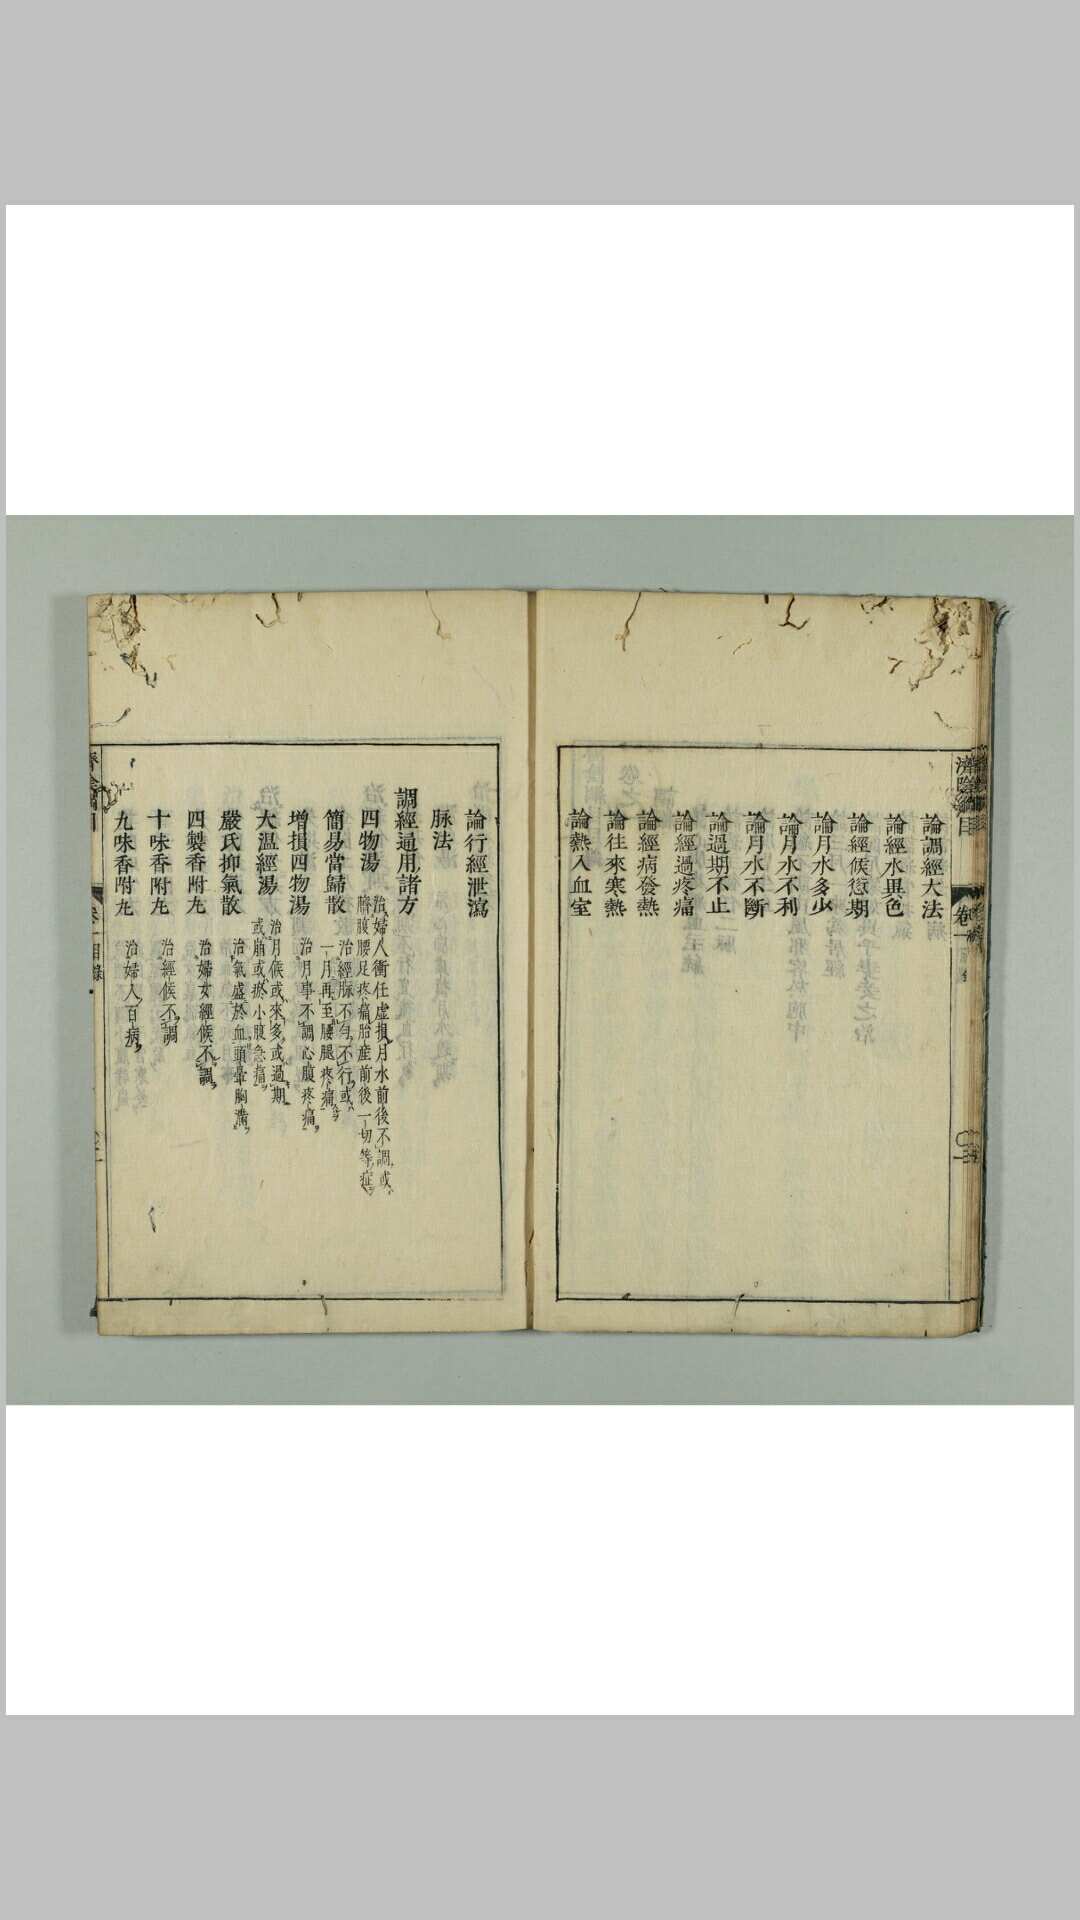 濟陰綱目
卷一
論調經大法
論經水異色
論經候愆期
論月水多少
論月水不利
論月水不斷
論過期不止
論經過疼痛
論經病發熱
論往來寒熱
論熱入血室
論行經泄瀉
脉法
調經通用諸方
四物湯
治婦人衝任虛損月水前後不調或
臍腹腰足疼痛胎産前後一切等症
簡易當歸散
治經脉不勻不行或
一月再至腰腿疼痛
增損四物湯
治月事不調心腹疼痛
大溫經湯
治月候或來多或過期
或崩或瘀小腹急痛
嚴氏抑氣散
治氣盛於血頭暈胸滿
四製香附丸
治婦女經候不調
十味香附丸
治經候不調
九味香附丸
治婦人百病
卷一目錄